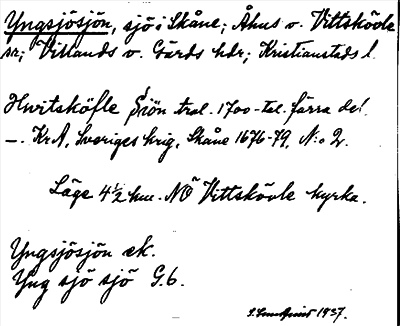 Yngsjösjön, sjö i Skåne; Åhus o. Vittskövle
snr; Villands o. Gärds hdr; Kristianstads l.
Hwitsköfle Siön trol. 1700-tal. förra del.
–. KrA, Sveriges krig, Skåne 1676-79, N:o 2.
Läge 4½ km. NÖ Vittskövle kyrka.
Yngsjösjön ek.
Yng sjö sjö G.6.
1937.